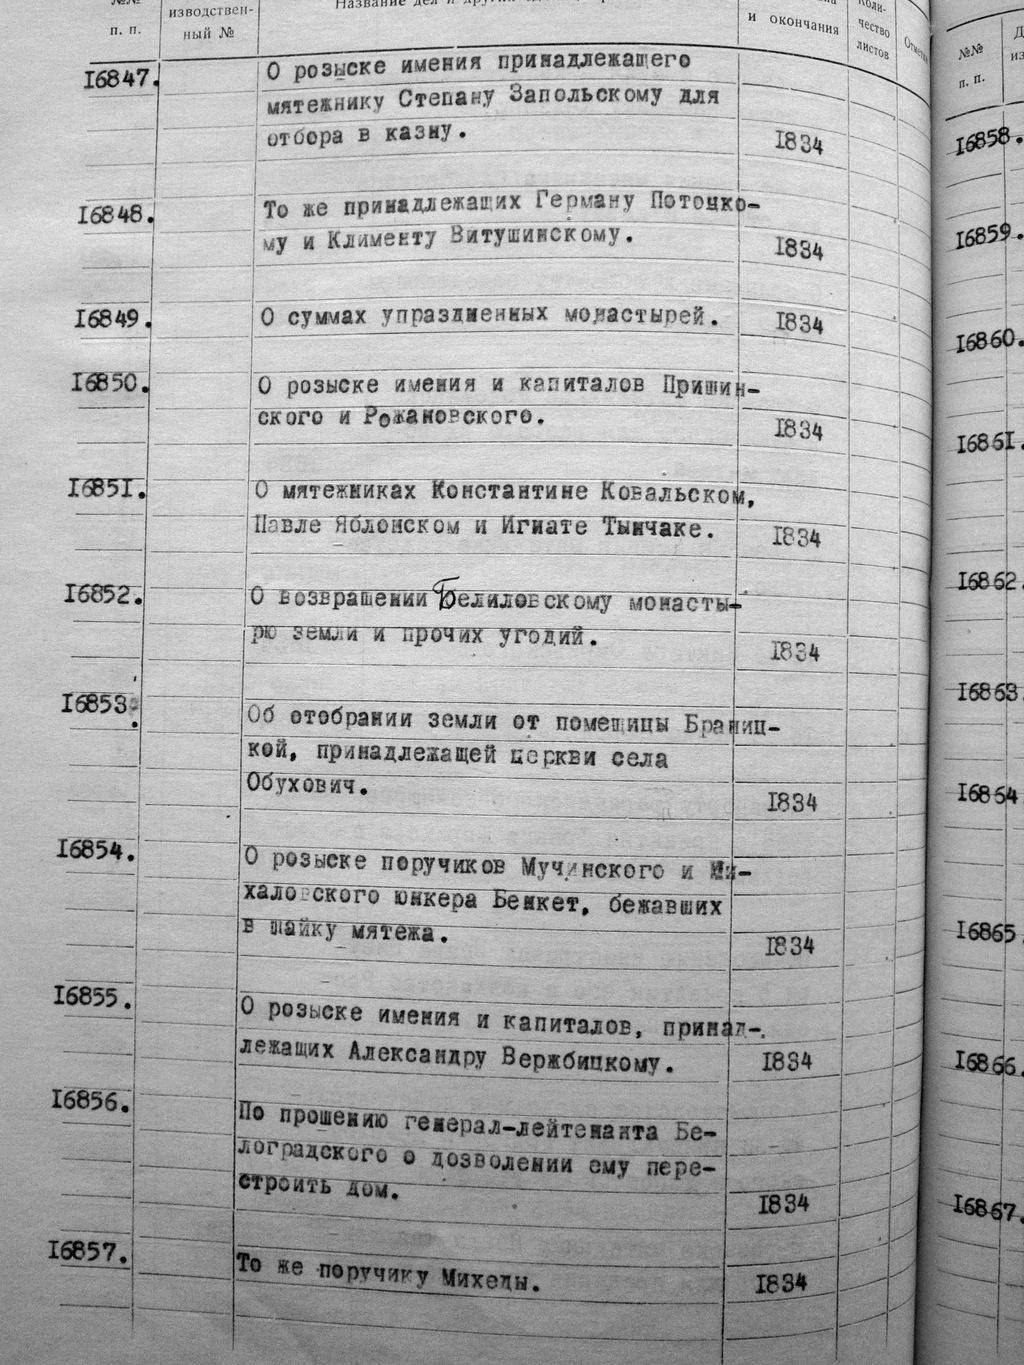 №№
п. п.
изводствен-
ный №
Название дел и
и окончания
Коли-
чество
листов
16847.
О розыске имения принадлежащего
мятежнику Степану Запольскому для
отбора в казну.
1834
16848.
То же принадлежащих Герману Потоцко-
му и Клименту Витушинскому.
1834
16849.
О суммах упраздненных монастырей.
1834
16850.
О розыске имения и капиталов Пришин-
ского и Рожановского.
1834
16851.
О мятежниках Константине Ковальском,
Павле Яблонском и Игнате Тынчаке.
1834
16852.
О возвращении Белиловскому монасты-
рю земли и прочих угодий.
1834
16853.
Об отобрании земли от помещицы Браниц-
кой, принадлежащей церкви села
Обухович.
1834
16854.
О розыске поручиков Мучинского и Ми-
халовского юнкера Бенкет, бежавших
в шайку мятежа.
1834
16855.
О розыске имения и капиталов, принад-
лежащих Александру Вержбицкому.
1834
16856.
По прошению генерал-лейтенанта Бе-
лоградского о дозволении ему пере-
строить дом.
1834
16857.
То же поручику Михеды.
1834
№№
п. п.
16858.
16859.
16860.
16861.
16862.
16863.
16864
16865
16866.
16867.